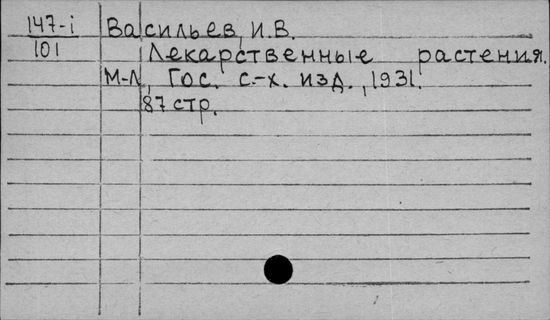 147-i Васильев, И.В.
101 Лекарственные растения.
М-Л, Гос. с.-х. изд., 1931.
87 стр.